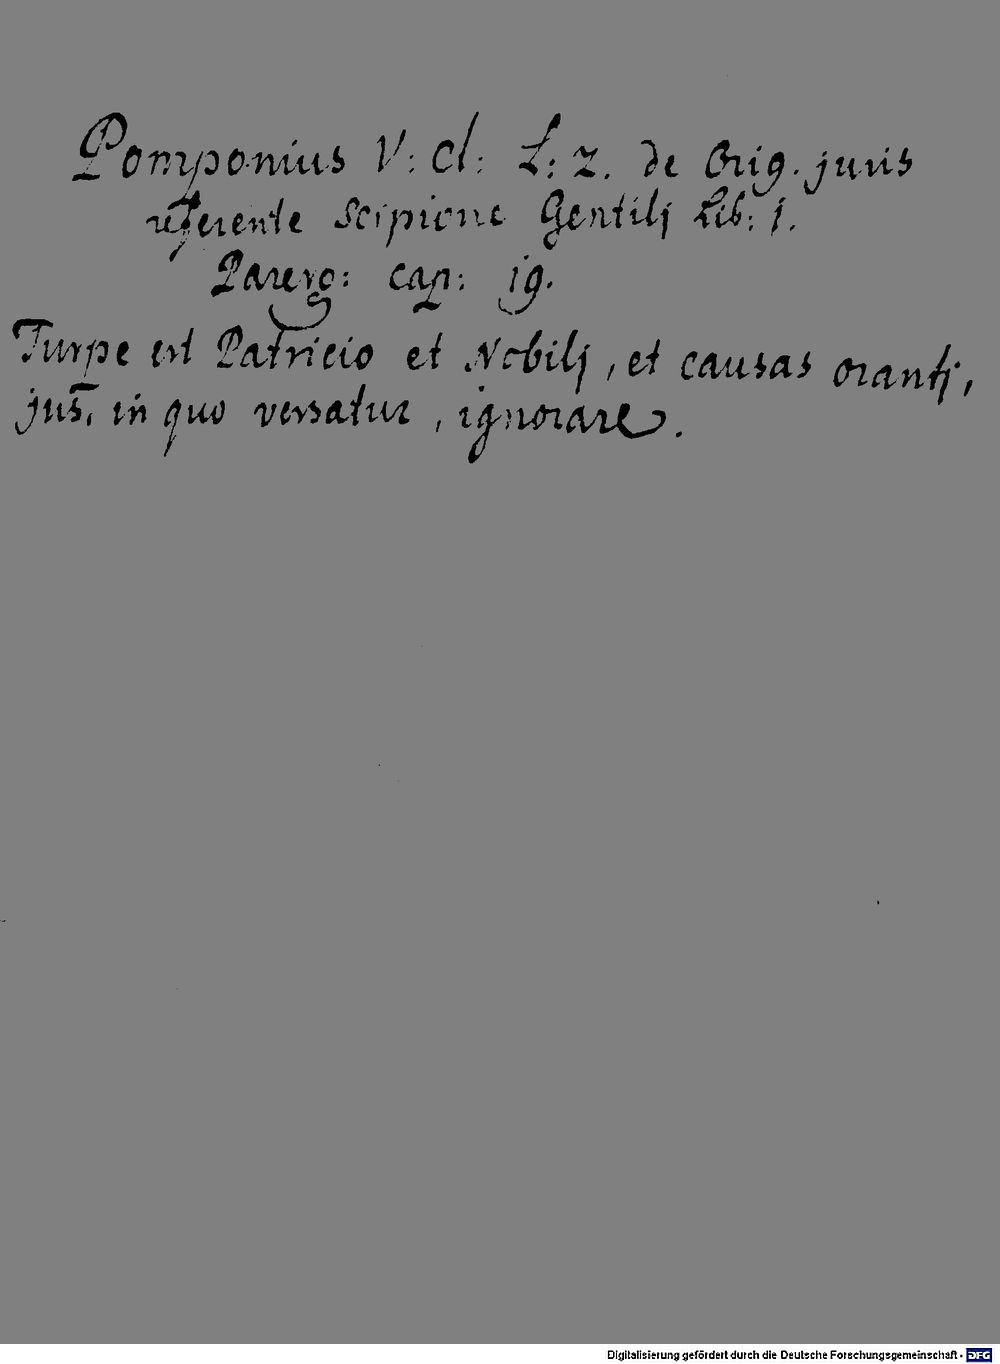 Pomponius V: Cl: L: 2. de Orig. juris
referente Scipione Gentilj Lib: j.
Parerg: cap: j9.
Turpe est Patricio et Nobilj, et causas orantj,
jus, in quo versatur, ignorare.
Digitalisierung gefördert durch die Deutsche Forschungsgemeinschaft - DFG